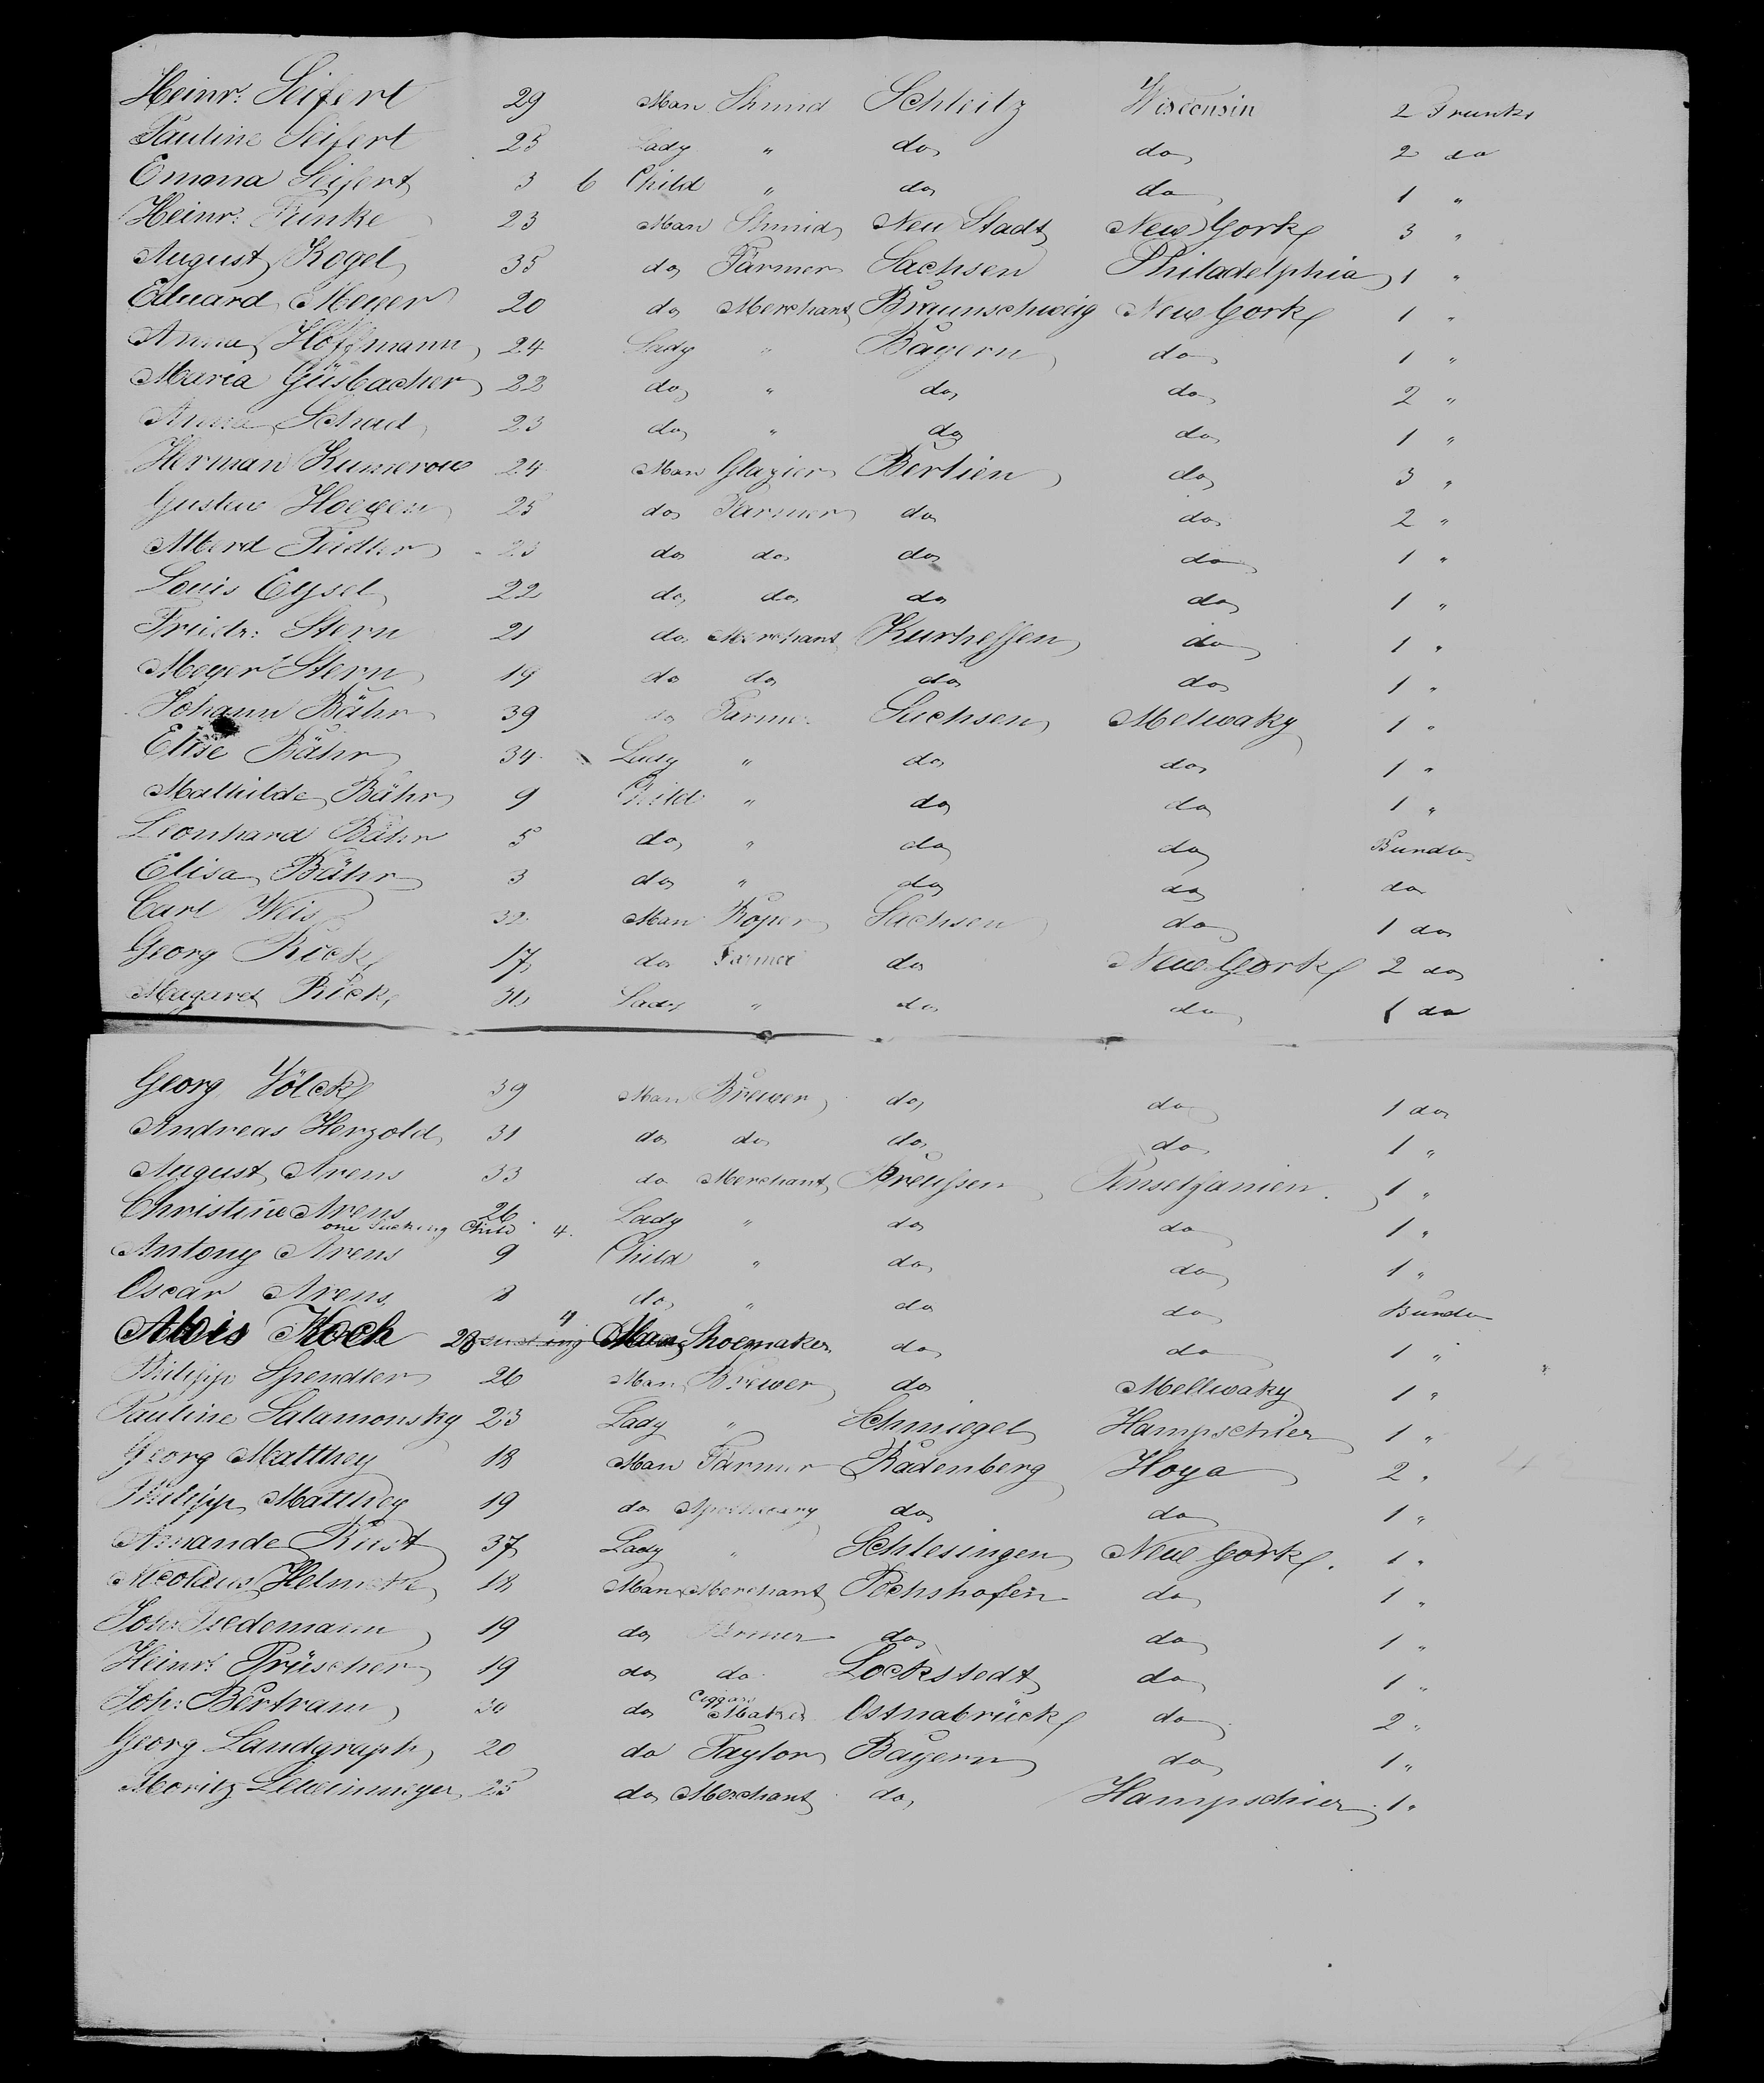 Heinr: Seifert 29 Man Shmid Schleitz Wisconsin 2 Trunks
Pauline Seifert 25 Lady " do do 2 do
Emma Seifert 3 6 Child " do do 1 "
Heinr: Funke 23 Man Shmid Neu Stadt New York 3 "
August Kogel 35 do Farmer Sachsen Philadelphia 1 "
Eduard Meyer 20 do Merchant Braunschweig New York 1 "
Anna Hoffmann 24 Lady " Bayern do 1 "
Maria Güsbacher 22 do " do do 2 "
Anna Schad 23 do " do do 1 "
Herman Kumerow 24 Man Glazier Berlien do 3 "
Gustav 25 do Farmer do do 2 "
Alberd Fiedler 23 do do do do 1 "
Louis Eysel 22 do do do do 1 "
Friedr: Stern 21 do Merchant Kurhessen do 1 "
Meyer Stern 19 do do do do 1 "
Johann Bähr 39 do Farmer Sachsen Melwaky 1 "
Elise Bähr 34 Lady " do do 1 "
Mathilde Bähr 9 Child " do do 1 "
Leonhard Bähr 5 do " do do Bundle
Elisa Bähr 3 do " do do do
Carl Weis 32 Man Roper Sachsen do 1 do
Georg Rick 17 do Farmer do New York 2 do
Magaret Rick Lady " do do 1 do
Georg Völck 39 Man Brewer do do 1 do
Andreas Herzold 31 do do do do 1 "
August Arens 33 do Merchant Preussen Penseljanien 1 "
Christine Arens 26 Lady " do do 1 "
one Sucking Child 4
Antony Arens 9 Child " do do 1 "
Oscar Arens 8 do " do do Bundle
Alois Koch 28 4 Man Shoemaker do do 1 "
Philipp Spendler 26 Man Brewer do Mellwaky 1 "
Pauline Salamonsky 23 Lady " Schmiegel Hampschier 1 "
Georg Matthey 18 Man Farmer Radenberg Hoya 2 "
Philipp Matthey 19 do Apothecary do do 1 "
Amande Rust 37 Lady " Schlesingen New York 1 "
Nicolaus Helmcke 18 Man Merchant Pechshofen do 1 "
Joh: Tiedemann 19 do Farmer do do 1 "
Heinr: Prüscher 19 do do Lockstedt do 1 "
Joh: Bertram 30 do Ciggars Maker Ostnabrück do 2 "
Georg Landgraph 20 do Taylor Bayern do 1 "
Moritz 25 do Merchant do Hampschier 1 "